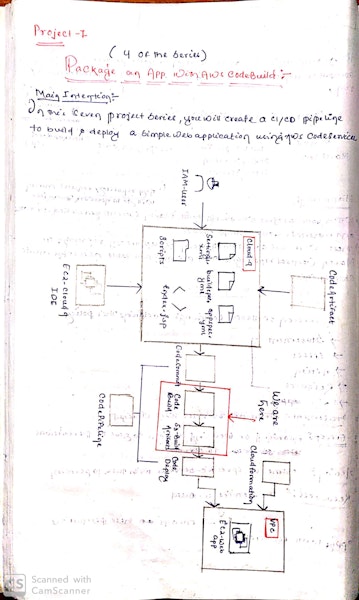 Project-7
(4 of the Series)
Package an App with AWS CodeBuild :-
Main Intention:-
In this seven project series, you will create a CI/CD pipeline
to build & deploy a simple web application using AWS Code Service
IAM-user
Cloud-9
Settings.xml
buildspec.yml
appspec.yml
Scripts
index.jsp
Code Artifact
EC2-Cloud9
IDE
CodeCommit
Code
Build
S3-Build
Artifact
Code
Deploy
We are
here
CodePipeline
Cloudformation
VPC
EC2-Web
app
Scanned with
CamScanner